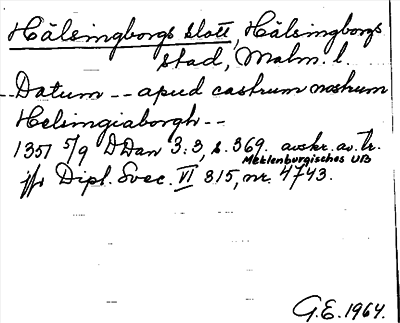 Hälsingborgs slott, Hälsingborgs
stad, Malm. l.
-- Datum -- apud castrum nostrum
Helsingiaborgh --
1351 5/9 DDan 3:3, s. 369. avskr. av tr.
Mecklenburgisches UB
jfr Dipl. Svec. VI 315, nr. 4743.
G.E. 1964.